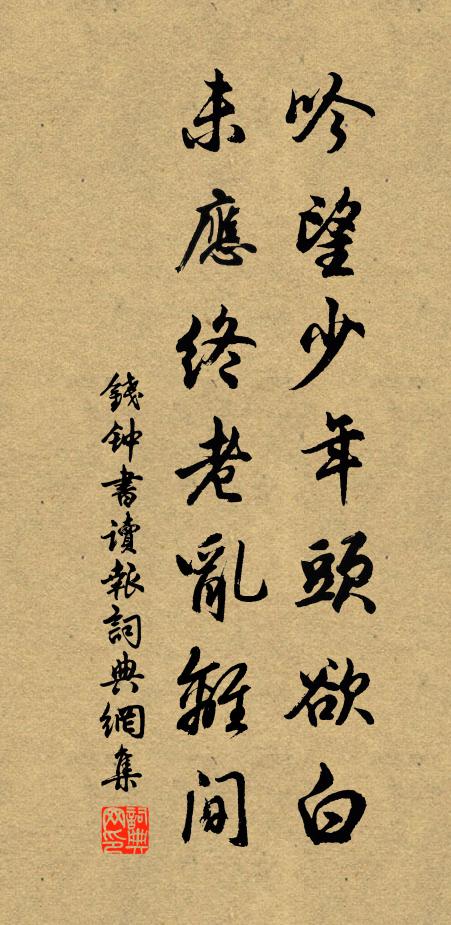 吟望少年頭欲白
未應終老亂離间
錢钟書讀報詞典網集
詞典
网印